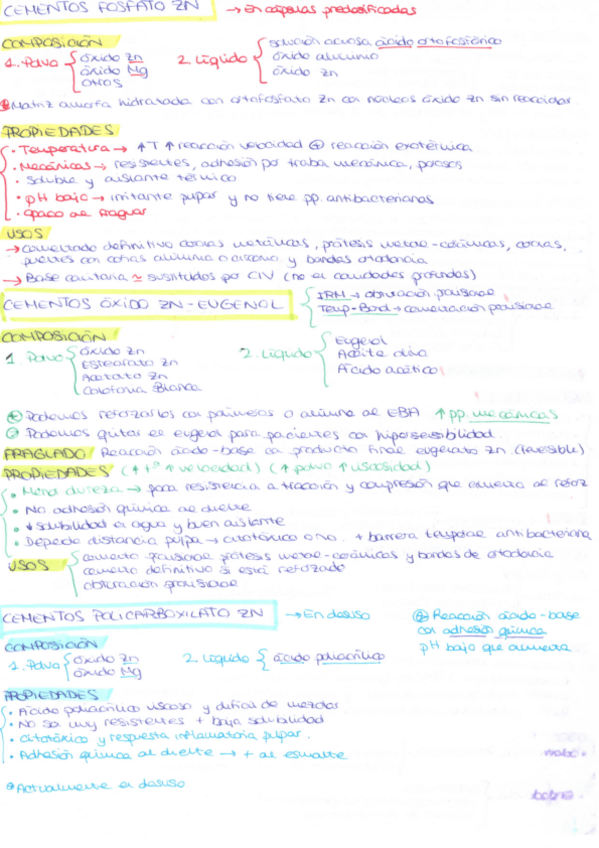 CEMENTOS FOSFATO ZN → En cápsulas predosificadas
COMPOSICIÓN
1. Polvo { óxido Zn
óxido Mg
otros
2. Líquido { solución acuosa ácido ortofosfórico
óxido aluminio
óxido zn
Matriz amorfa hidratada con ortofosfato Zn con núcleos óxido Zn sin reaccionar.
PROPIEDADES
· Temperatura → ↑T ↑ reacción velocidad ⊕ reacción exotérmica
· Mecánicas → resistentes, adhesión por traba mecánica, porosos
· Soluble y aislante térmico
· pH bajo → irritante pulpar y no tiene pp. antibacterianas
· Opaco al fraguar
USOS
→ cementado definitivo coronas metálicas, prótesis metal-cerámicas, coronas,
puentes con cofias alúmina o zirconio y bandas ortodoncia
→ Base cavitaria ≃ sustituidos por CIV (no en cavidades profundas)
CEMENTOS ÓXIDO ZN-EUGENOL
IRM → obturación provisional
Temp-Bond → cementación provisional
COMPOSICIÓN
1. Polvo { óxido Zn
Estearato Zn
Acetato Zn
Colofonia Blanca
2. Líquido { Eugenol
Aceite oliva
Ácido acético
⊕ Podemos reforzarlos con polímeros o alúmina al EBA ↑ pp. mecánicas
⊖ Podemos quitar el eugenol para pacientes con hipersensibilidad
FRAGUADO Reacción ácido-base con producto final eugenolato Zn (reversible)
PROPIEDADES (↑tª ↑ velocidad) (↑ polvo ↑ viscosidad)
· Menor dureza → poca resistencia a tracción y compresión que aumenta al reforz
· No adhesión química al diente
· ↓ solubilidad en agua y buen aislante
· Depende distancia pulpa → citotóxico o no. + barrera temporal antibacteriana
USOS { cemento provisional prótesis metal-cerámicas y bandas de ortodoncia
cemento definitivo si está reforzado
obturación provisional
CEMENTOS POLICARBOXILATO ZN → En desuso
⊕ Reacción ácido-base
con adhesión química
pH bajo que aumenta
COMPOSICIÓN
1. Polvo { óxido Zn
óxido Mg
2. Líquido { ácido poliacrílico
PROPIEDADES
· Ácido poliacrílico viscoso y difícil de mezclar
· No son muy resistentes + baja solubilidad
· citotóxico y respuesta inflamatoria pulpar.
· Adhesión química al diente → + al esmalte
Actualmente en desuso